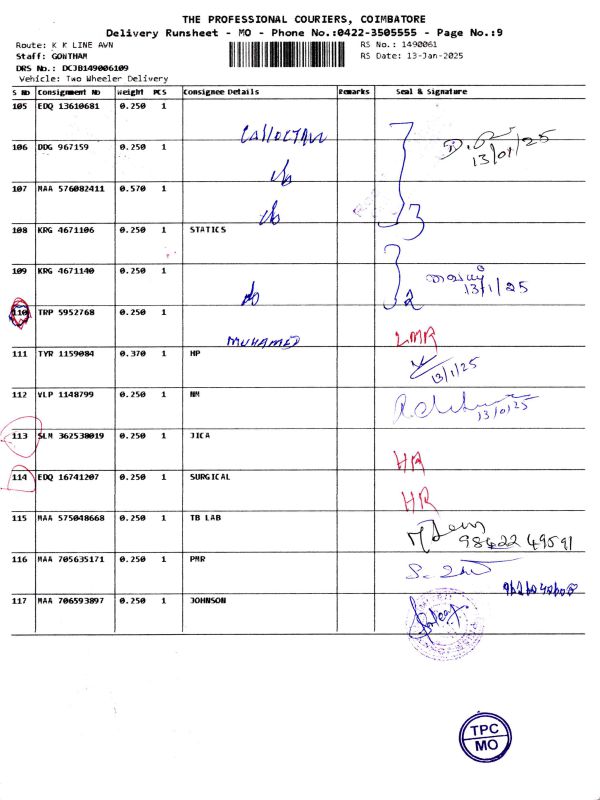 THE PROFESSIONAL COURIERS, COIMBATORE
Delivery Runsheet - MO - Phone No.:0422-3505555 - Page No.:9
Route: K K LINE AVN RS No.: 1490061
Staff: GONTHAM RS Date: 13-Jan-2025
DRS No.: DCJB149006109
Vehicle: Two Wheeler Delivery
S No Consignment No Weight PCS Consignee Details Remarks Seal & Signature
105 EDQ 13610681 0.250 1
13/01/25
106 DDG 967159 0.250 1
107 MAA 576082411 0.570 1
3
108 KRG 4671106 0.250 1 STATICS
109 KRG 4671140 0.250 1
2 13/1/25
110 TRP 5952768 0.250 1 MUHAMED LMR
111 TYR 1159084 0.370 1 HP
13/1/25
112 VLP 1148799 0.250 1 NM
13/01/25
113 SLM 362538019 0.250 1 JICA
HR
114 EDQ 16741207 0.250 1 SURGICAL
HR
115 MAA 575048668 0.250 1 TB LAB
98422 49591
116 MAA 705635171 0.250 1 PMR
117 MAA 706593897 0.250 1 JOHNSON
TPC
MO